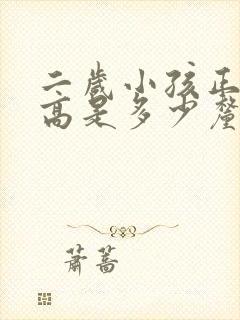 二歲小孩正
高是多少釐
蕭蔷